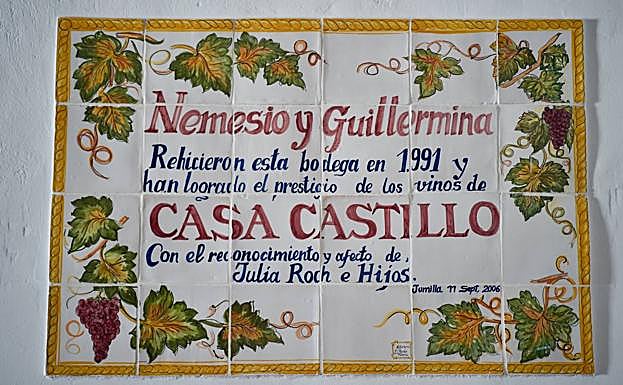 Nemesio y Guillermina
Rehicieron esta bodega en 1991 y
han logrado el prestigio de los vinos de
CASA CASTILLO
Con el reconocimiento y afecto de,
Julia Roch e Hijos.
Jumilla 11 Sept. 2006